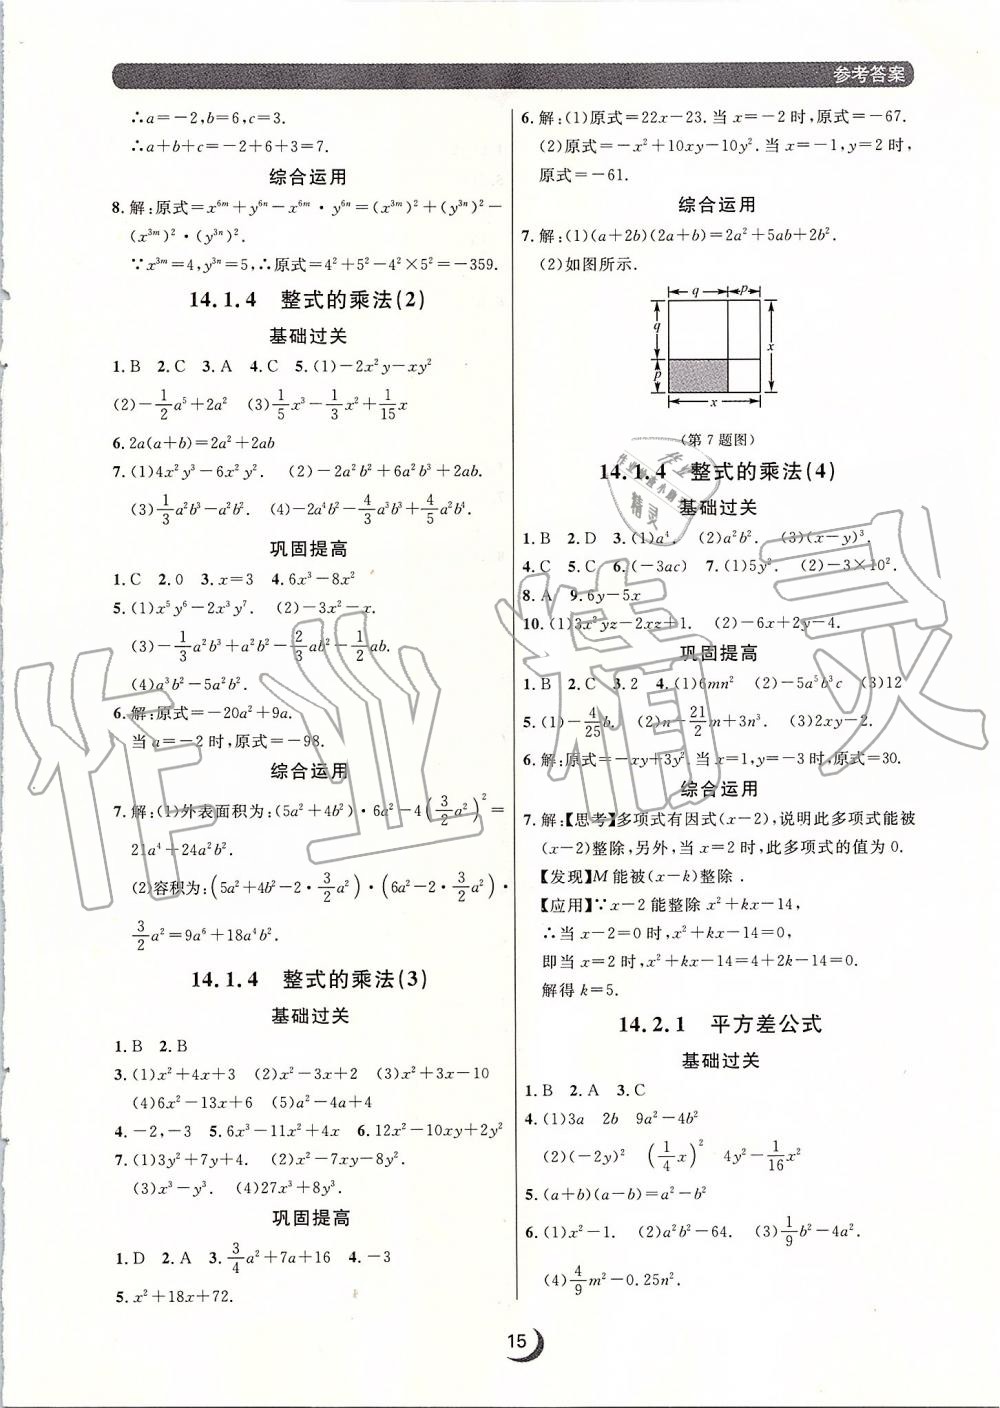 参考答案
∴a=-2,b=6,c=3.
∴a+b+c=-2+6+3=7.
综合运用
8. 解:原式=x⁶ᵐ+y⁶ⁿ-x⁶ᵐ·y⁶ⁿ=(x³ᵐ)²+(y³ⁿ)²-
(x³ᵐ)²·(y³ⁿ)².
∵x³ᵐ=4,y³ⁿ=5,∴原式=4²+5²-4²×5²=-359.
14.1.4 整式的乘法(2)
基础过关
1. B 2. C 3. A 4. C 5. (1)-2x²y-xy²
(2)-1/2a⁵+2a² (3)1/5x³-1/3x²+1/15x
6. 2a(a+b)=2a²+2ab
7. (1)4x²y³-6x²y². (2)-2a²b²+6a²b³-2a²b.
(3)1/3a²b³-a²b². (4)-2a⁴b²-4/3a³b³+4/5a²b⁴.
巩固提高
1. C 2. 0 3. x=3 4. 6x³-8x²
5. (1)x⁵y⁶-2x³y⁷. (2)-3x²-x.
(3)-1/3a²b³+a²b²-2/3ab²-1/2ab.
(4)a³b²-5a²b².
6. 解:原式=-20a²+9a.
当a=-2时,原式=-98.
综合运用
7. 解:(1)外表面积为:(5a²+4b²)·6a²-4(3/2a²)²=
21a⁴+24a²b².
(2)容积为:(5a²+4b²-2·3/2a²)·(6a²-2·3/2a²)·
3/2a²=9a⁶+18a⁴b².
14.1.4 整式的乘法(3)
基础过关
1. B 2. B
3. (1)x²+4x+3 (2)x²-3x+2 (3)x²+3x-10
(4)6x²-13x+6 (5)a²-4a+4
4. -2,-3 5. 6x³-11x²+4x 6. 12x²-10xy+2y²
7. (1)3y²+7y+4. (2)x²-7xy-8y².
(3)x³-y³. (4)27x³+8y³.
巩固提高
1. D 2. A 3. 3/4a²+7a+16 4. -3
5. x²+18x+72.
6. 解:(1)原式=22x-23. 当x=-2时,原式=-67.
(2)原式=-x²+10xy-10y². 当x=-1,y=2时,
原式=-61.
综合运用
7. 解:(1)(a+2b)(2a+b)=2a²+5ab+2b².
(2)如图所示.
q p
q
x
p
x
(第7题图)
14.1.4 整式的乘法(4)
基础过关
1. B 2. D 3. (1)a⁴. (2)a²b². (3)(x-y)³.
4. C 5. C 6. (-3ac) 7. (1)5y². (2)-3×10².
8. A 9. 6y-5x
10. (1)3x²yz-2xz+1. (2)-6x+2y-4.
巩固提高
1. B 2. C 3. 2 4. (1)6mn² (2)-5a⁵b³c (3)12
5. (1)-4/25b. (2)n-21/2m+3n³. (3)2xy-2.
6. 解:原式=-xy+3y². 当x=1,y=-3时,原式=30.
综合运用
7. 解:【思考】多项式有因式(x-2),说明此多项式能被
(x-2)整除,另外,当x=2时,此多项式的值为0.
【发现】M能被(x-k)整除.
【应用】∵x-2能整除x²+kx-14,
∴当x-2=0时,x²+kx-14=0,
即当x=2时,x²+kx-14=4+2k-14=0.
解得k=5.
14.2.1 平方差公式
基础过关
1. B 2. A 3. C
4. (1)3a 2b 9a²-4b²
(2)(-2y)² (1/4x)² 4y²-1/16x²
5. (a+b)(a-b)=a²-b²
6. (1)x²-1. (2)a²b²-64. (3)1/9b²-4a².
(4)4/9m²-0.25n².
15
作业精灵